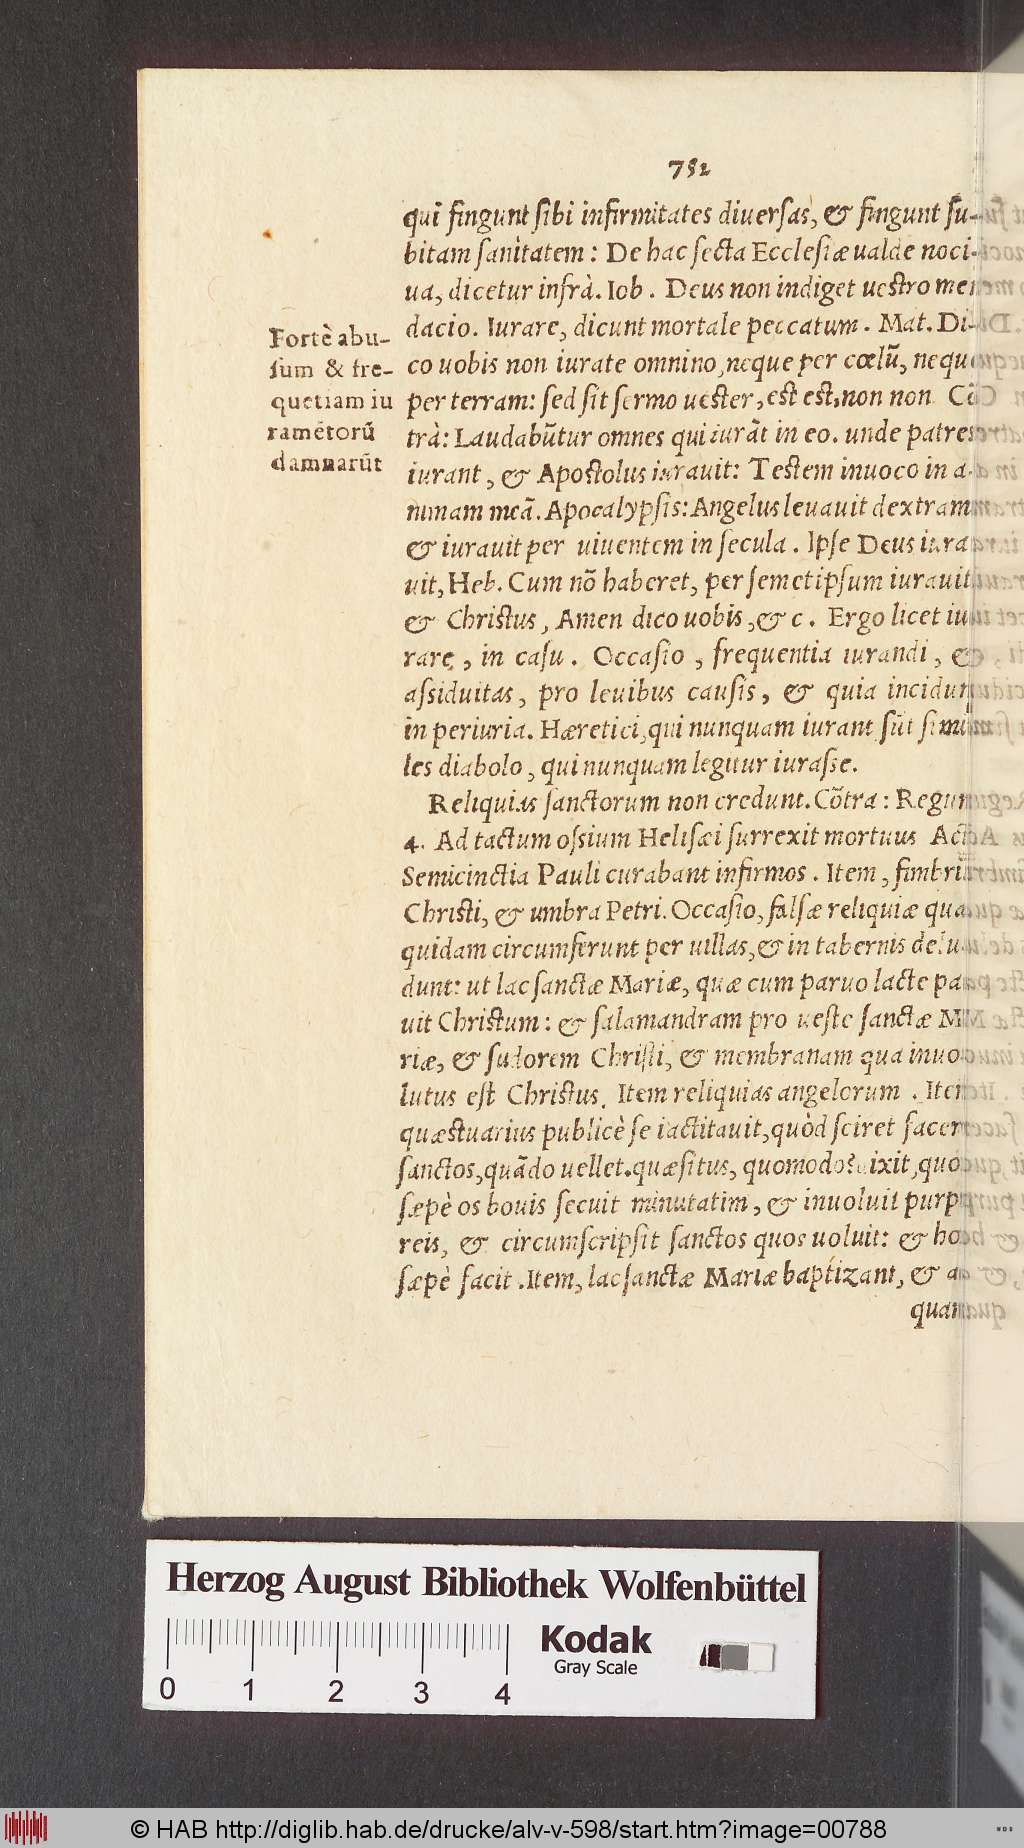 752
qui fingunt sibi infirmitates diuersas, & fingunt su-
bitam sanitatem: De hac secta Ecclesiæ ualde noci-
ua, dicetur infrà. Iob. Deus non indiget uestro men
dacio. Iurare, dicunt mortale peccatum. Mat. Di-
co uobis non iurate omnino, neque per cœlũ, neque
per terram: sed sit sermo uester, est est, non non. Cõ
trà: Laudabũtur omnes qui iurãt in eo. unde patres
iurant, & Apostolus iurauit: Testem inuoco in a-
nimam meã. Apocalypsis: Angelus leuauit dextram
& iurauit per uiuentem in secula. Ipse Deus iura
uit, Heb. Cum nõ haberet, per semetipsum iurauit
& Christus, Amen dico uobis, & c. Ergo licet iu
rare, in casu. Occasio, frequentia iurandi, &
assiduitas, pro leuibus causis, & quia incidunt
in periuria. Hæretici, qui nunquam iurant sũt simi
les diabolo, qui nunquam legitur iurasse.
Fortè abu-
sum & fre-
quētiam iu
ramētorũ
damnarũt
Reliquias sanctorum non credunt. Cõtra: Regum
4. Ad tactum ossium Helisæi surrexit mortuus Act.
Semicinctia Pauli curabant infirmos. Item, fimbria
Christi, & umbra Petri. Occasio, falsæ reliquiæ quas
quidam circumferunt per uillas, & in tabernis delu-
dunt: ut lac sanctæ Mariæ, quæ cum paruo lacte pa
uit Christum: & salamandram pro ueste sanctæ Ma
riæ, & sudorem Christi, & membranam qua inuo
lutus est Christus. Item reliquias angelorum. Item
quæstuarius publicè se iactitauit, quòd sciret facere
sanctos, quãdo uellet. quæsitus, quomodo? dixit, quod
sæpè os bouis secuit minutatim, & inuoluit purpu
reis, & circumscripsit sanctos quos uoluit: & hoc
sæpè facit. Item, lac sanctæ Mariæ baptizant, & a
quam
Herzog August Bibliothek Wolfenbüttel
0 1 2 3 4
Kodak
Gray Scale
© HAB http://diglib.hab.de/drucke/alv-v-598/start.htm?image=00788